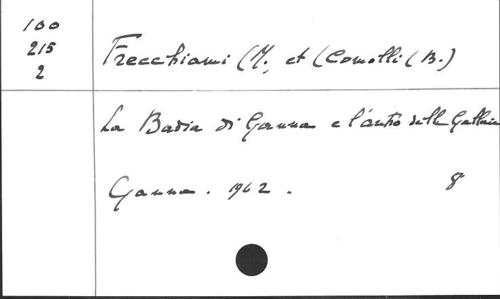 100
215
2
Frecchiami (M. et (Comolli (B.)
La Badia di Ganna e l'antro delle Gallerie
Ganna. 1962. 8